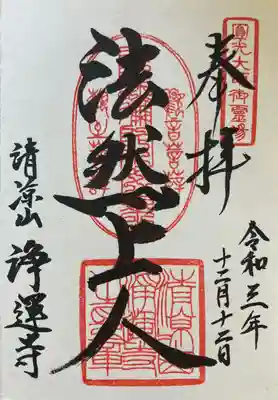 圓光大師御霊場
奉拝
令和三年
十二月十二日
法然上人
清涼山
淨運寺